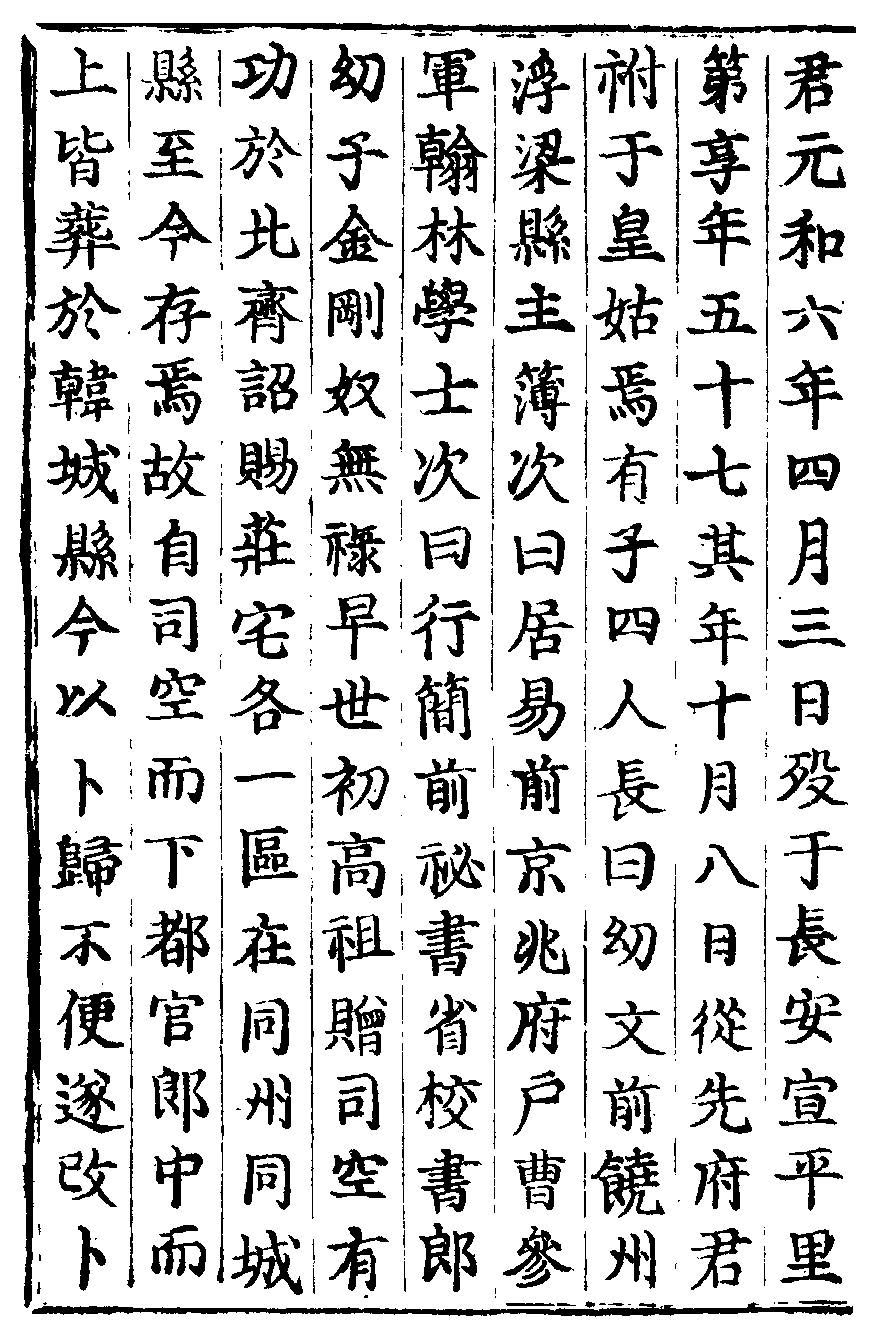 君元和六年四月三日歿于長安宣平里
第享年五十七其年十月八日從先府君
祔于皇姑焉有子四人長曰幼文前饒州
浮梁縣主簿次曰居易前京兆府戶曹參
軍翰林學士次曰行簡前祕書省校書郎
幼子金剛奴無祿早世初高祖贈司空有
功於北齊詔賜莊宅各一區在同州同城
縣至今存焉故自司空而下都官郎中而
上皆葬於韓城縣今以卜歸不便遂改卜